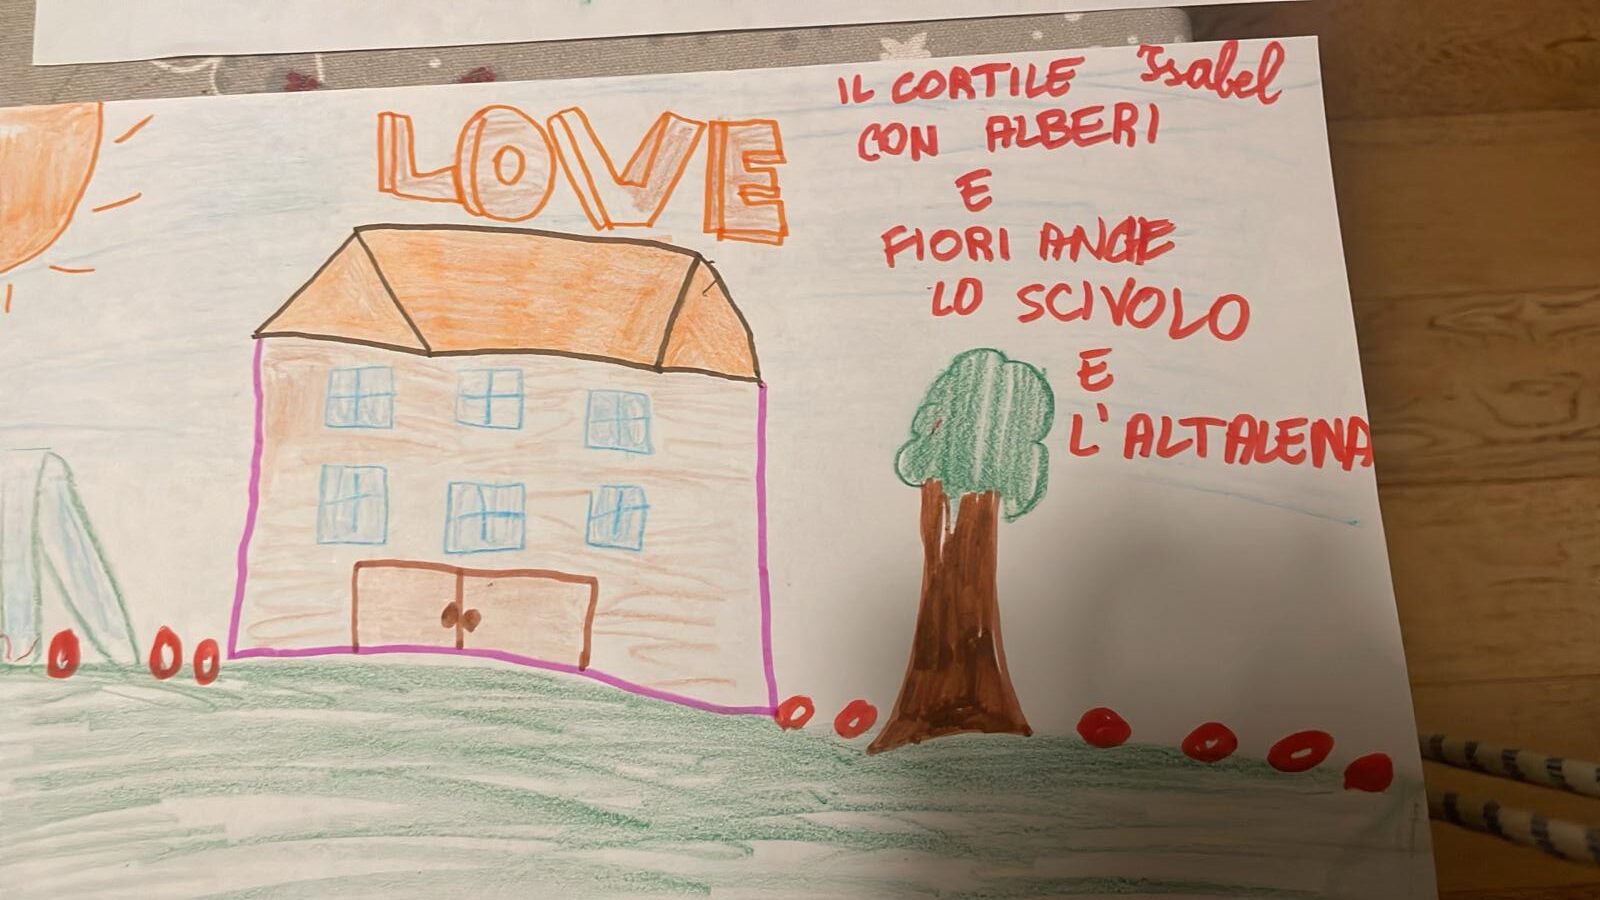 LOVE
IL CORTILE Isabel
CON ALBERI
E
FIORI ANCHE
LO SCIVOLO
E
L'ALTALENA